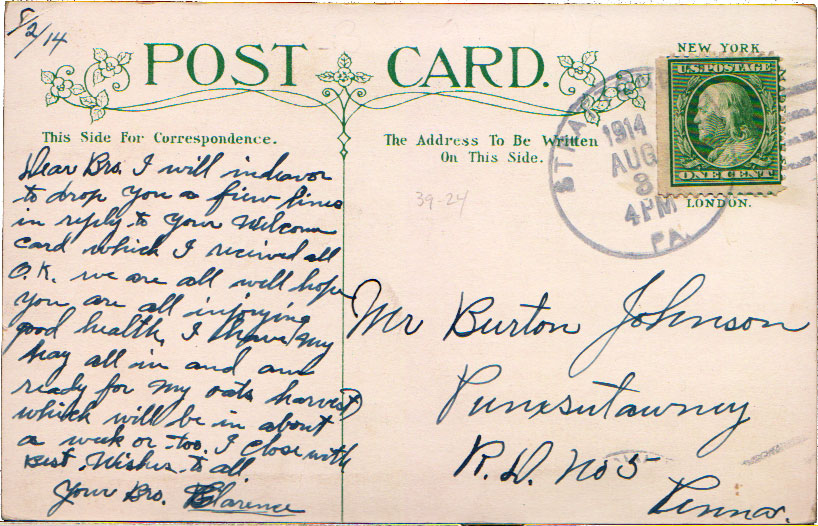 8/2/14
POST CARD.
This Side For Correspondence.
The Address To Be Written
On This Side.
NEW YORK
U.S. POSTAGE
ONE CENT
LONDON.
1914
AUG
3
4PM
PA.
39-24
Dear Bro. I will indeavor
to drop you a fiew lines
in reply to your Welcome
card which I recieved all
O.K. we are all well hope
you are all injoying
good health, I have my
hay all in and am
ready for my oats harvest
which will be in about
a week or too. I close with
Best Wishes to all
Your Bro. Clarence
Mr Burton Johnson
Punxsutawney
R.D. No 5
Penna.